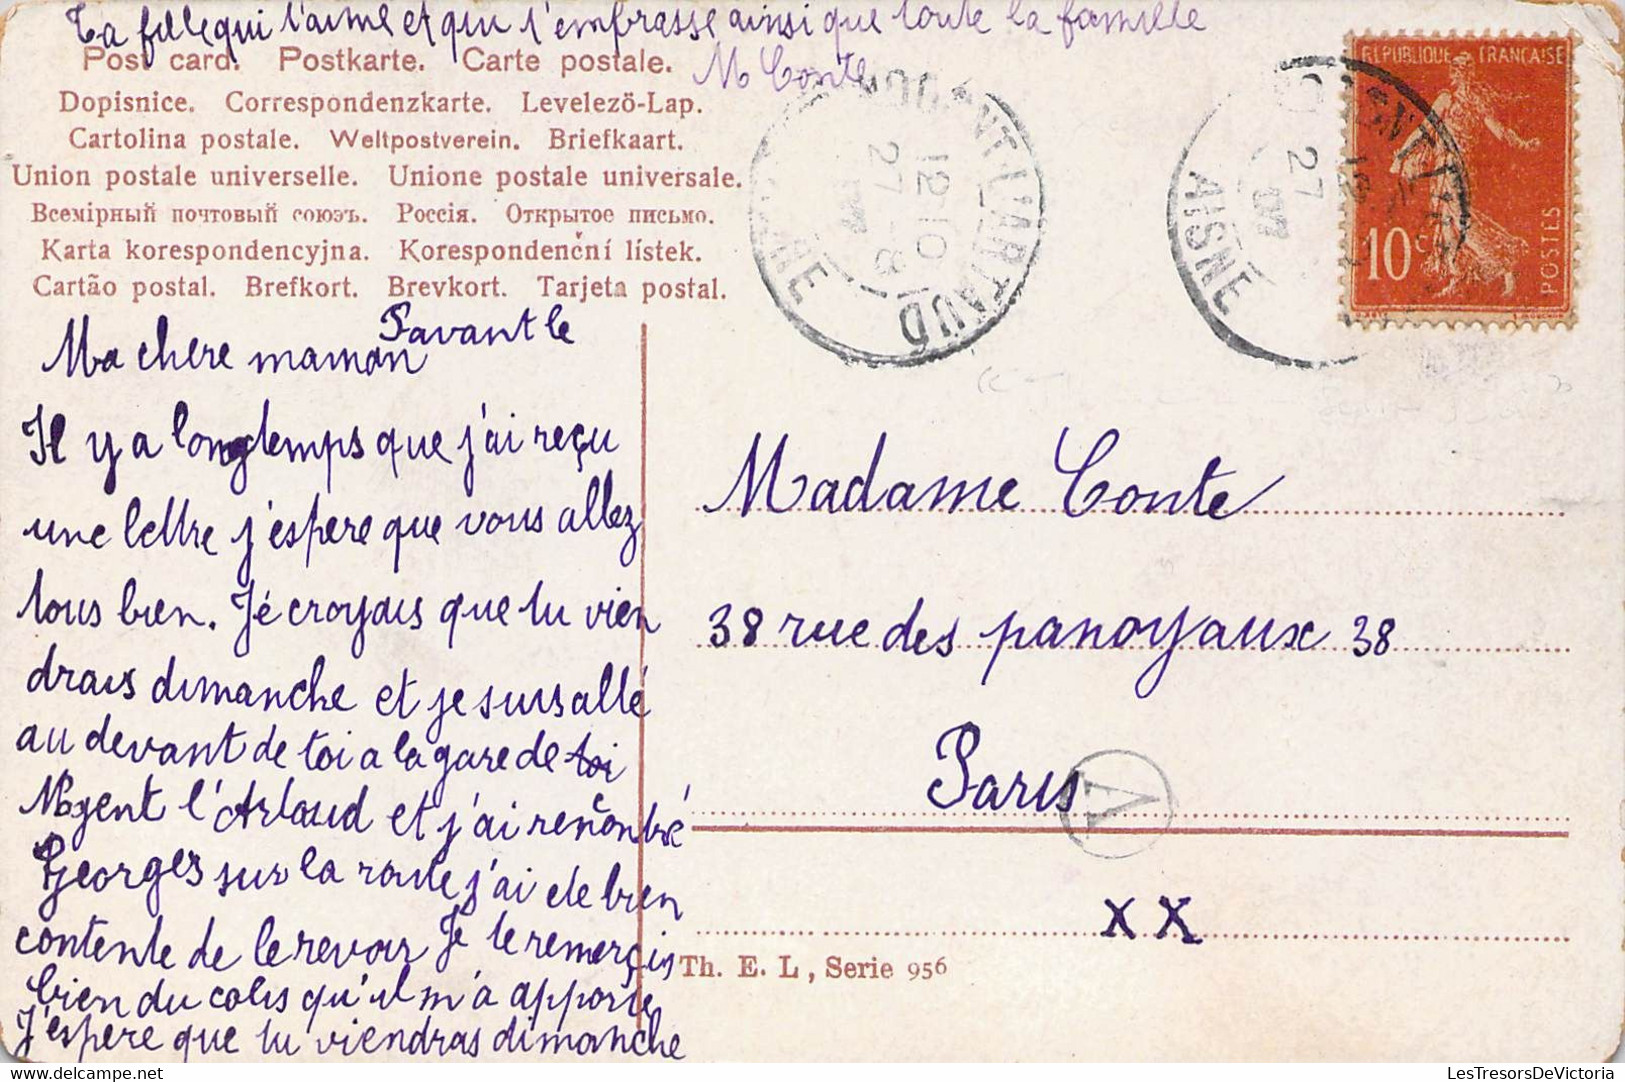 Ta fille qui t'aime et qui t'embrasse ainsi que toute la famille
M Conte
Post card. Postkarte. Carte postale.
Dopisnice. Correspondenzkarte. Levelező-Lap.
Cartolina postale. Weltpostverein. Briefkaart.
Union postale universelle. Unione postale universale.
Всемірный почтовый союзъ. Россія. Открытое письмо.
Karta korespondencyjna. Korespondenční lístek.
Cartão postal. Brefkort. Brevkort. Tarjeta postal.
NOGENT-L'ARTAUD
12 10
27 -8
AISNE
12
27
RÉPUBLIQUE FRANÇAISE
10c
POSTES
Pavant le
Ma chere maman
Il y a longtemps que j'ai reçu
une lettre j'espere que vous allez
tous bien. Jé croyais que tu vien
drais dimanche et je suis allé
au devant de toi a la gare de toi
Nogent l'Artaud et j'ai rencontré
Georges sur la route j'ai ete bien
contente de le revoir Je te remerçis
bien du colis qu'il m'a apporte
J'espere que tu viendras dimanche
Madame Conte
38 rue des panoyaux 38
Paris
A
XX
Th. E. L, Serie 956
LesTresorsDeVictoria.delcampe.net
LesTresorsDeVictoria